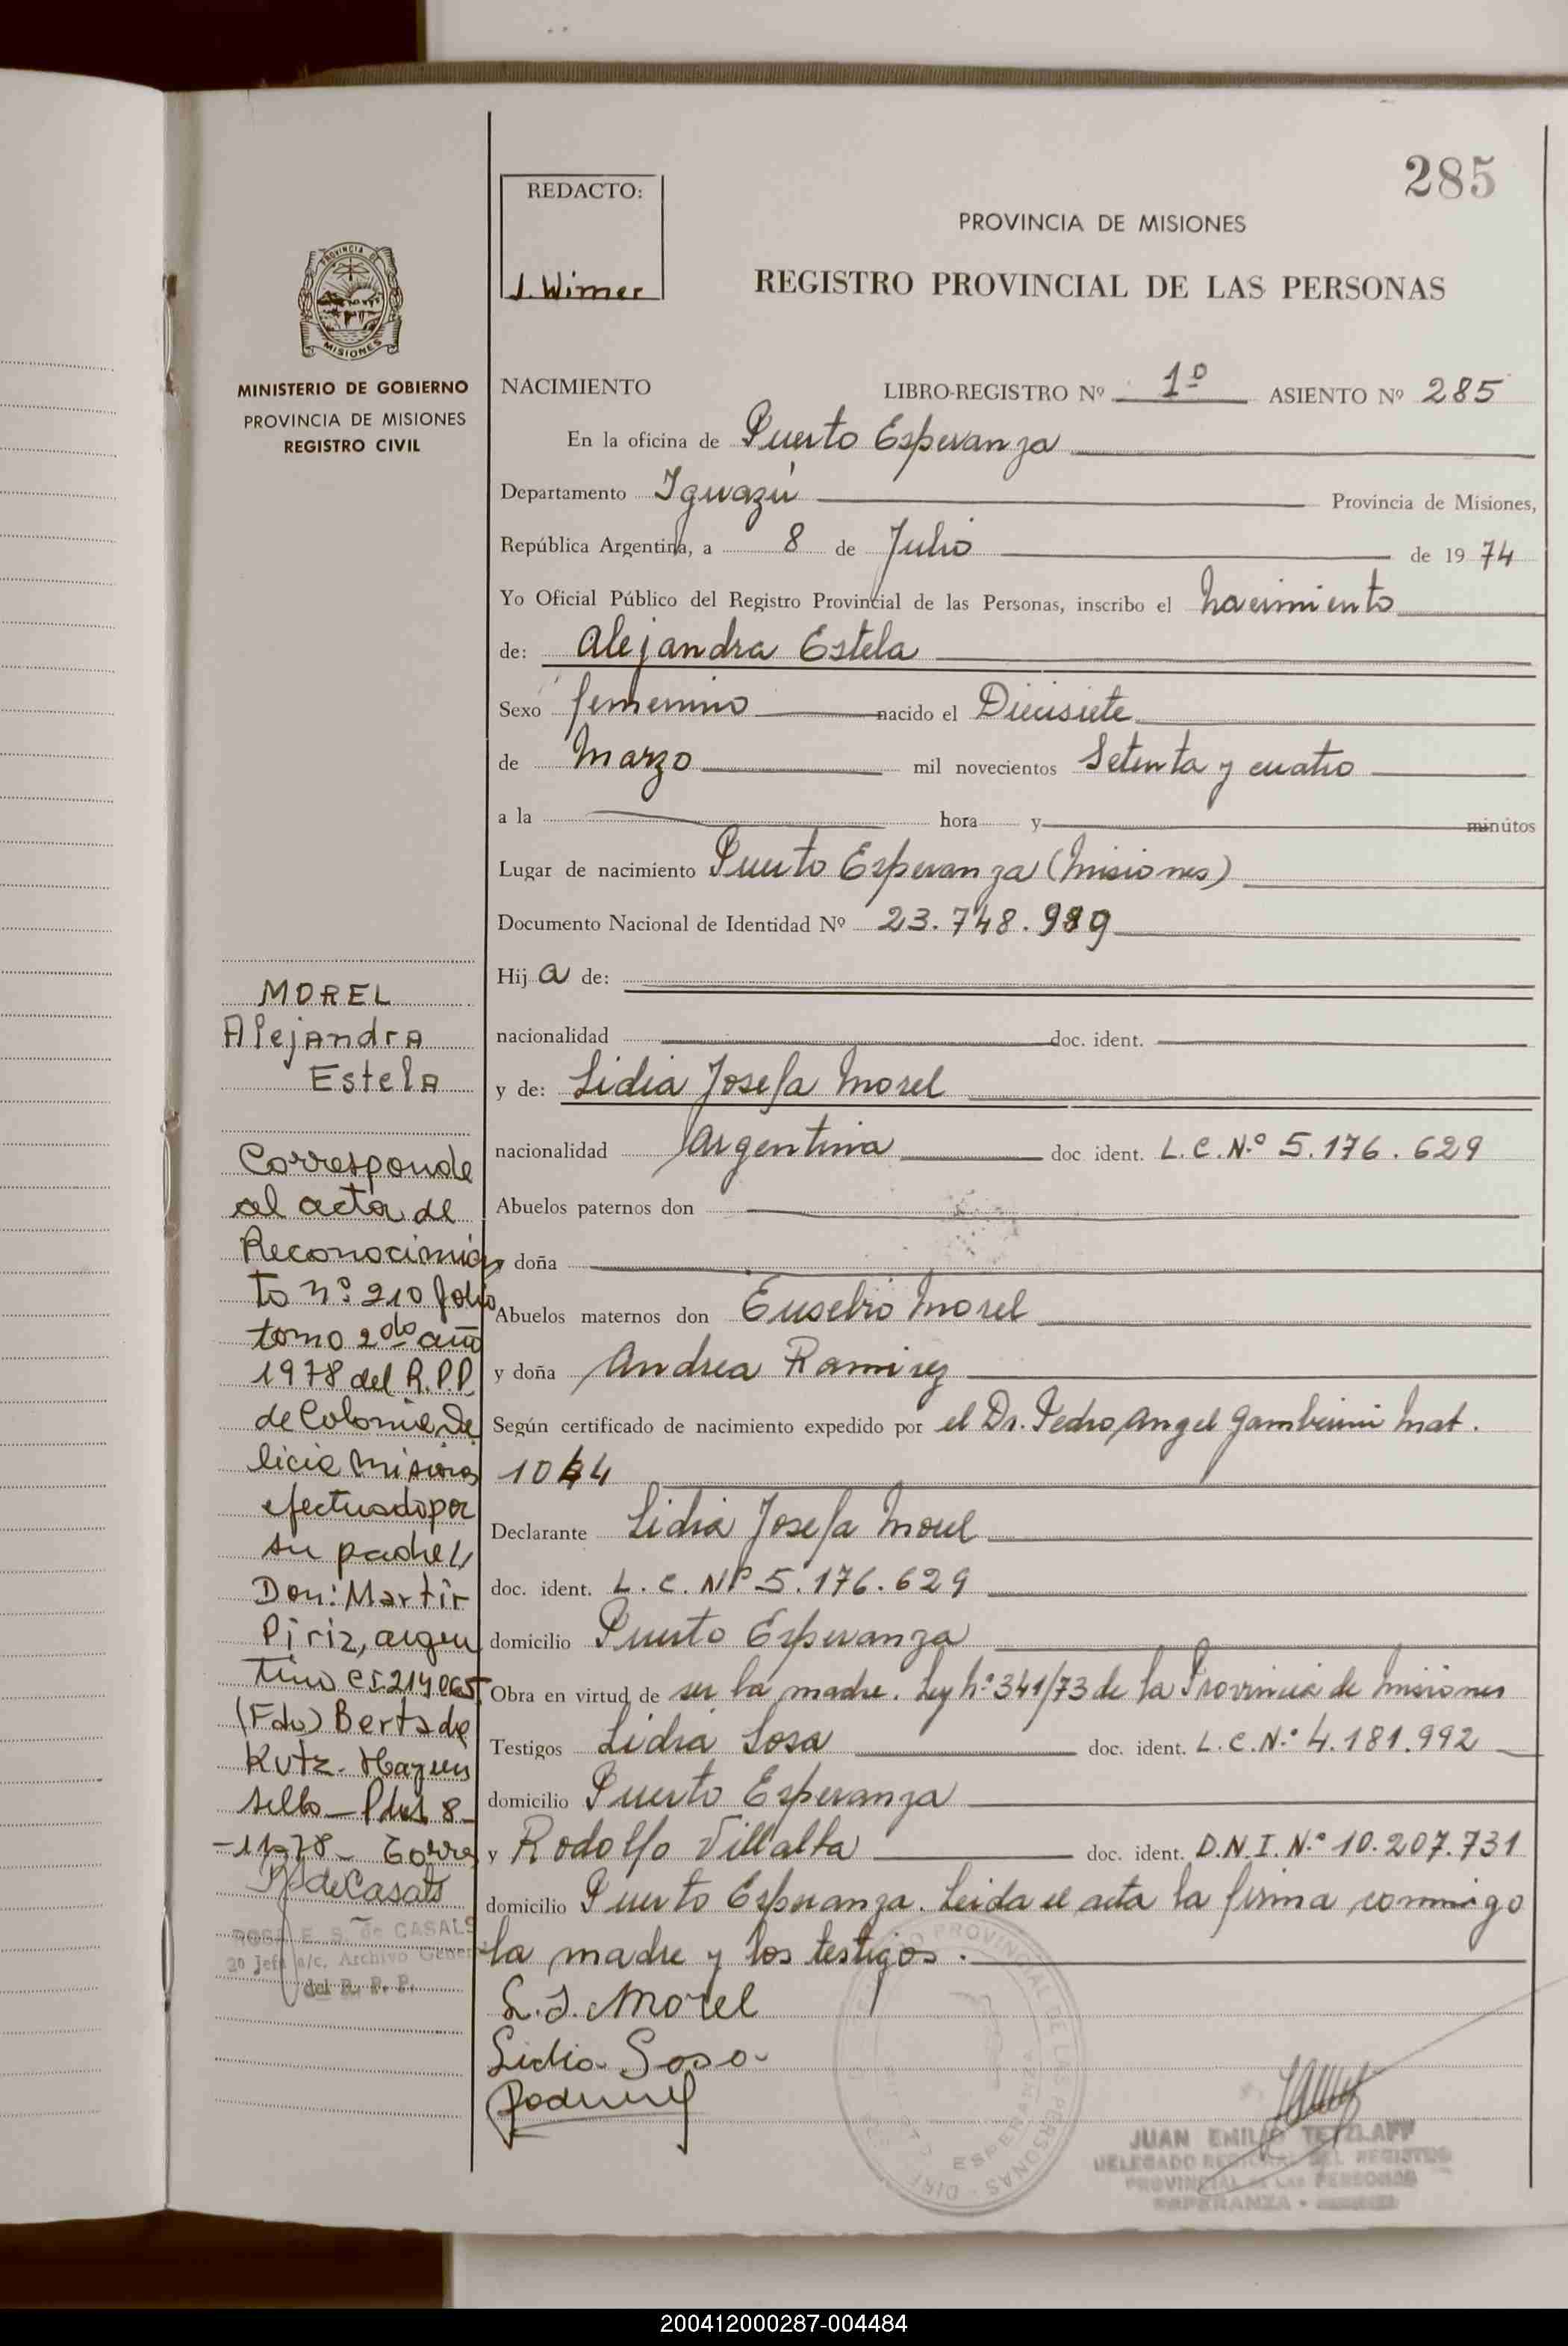 285
REDACTO:
J. Wimer
PROVINCIA DE MISIONES
REGISTRO PROVINCIAL DE LAS PERSONAS
PROVINCIA DE
MISIONES
MINISTERIO DE GOBIERNO
PROVINCIA DE MISIONES
REGISTRO CIVIL
NACIMIENTO LIBRO-REGISTRO Nº 1º ASIENTO Nº 285
En la oficina de Puerto Esperanza
Departamento Iguazú Provincia de Misiones,
República Argentina, a 8 de Julio de 1974
Yo Oficial Público del Registro Provincial de las Personas, inscribo el nacimiento
de: Alejandra Estela
Sexo femenino nacido el Diecisiete
de Marzo mil novecientos Setenta y cuatro
a la hora y minútos
Lugar de nacimiento Puerto Esperanza (Misiones)
Documento Nacional de Identidad Nº 23.748.989
Hija de:
nacionalidad doc. ident.
y de: Lidia Josefa Morel
nacionalidad Argentina doc ident. L.C.N.º 5.176.629
Abuelos paternos don
y doña
Abuelos maternos don Eusebio Morel
y doña Andrea Ramirez
Según certificado de nacimiento expedido por el Dr. Pedro Angel Gamberini Mat.
Declarante Lidia Josefa Morel
doc. ident. L.C. Nº 5.176.629
domicilio Puerto Esperanza
Obra en virtud de ser la madre. Ley Nº 341/73 de la Provincia de Misiones
Testigos Lidia Sosa doc. ident. L.C.N.º 4.181.992
domicilio Puerto Esperanza
y Rodolfo Villalta doc. ident. D.N.I.N.º 10.207.731
domicilio Puerto Esperanza. Leida el acta la firma conmigo
la madre y los testigos.
L.J. Morel
Lidia Sosa
MOREL
Alejandra
Estela
Corresponde
al acta de
Reconocimien
to nº 210 folio
tomo 2do año
1978 del R.P.P.
de Colonia De
licia Misiones
efectuado por
su padre
Don: Martir
Piriz, argen
tino CI 214065
(Fdo) Berta de
Kutz. Hay un
sello Pdas 8-
-11-78-
ROSA E. S. de CASALS
2º Jefe a/c. Archivo General
del R. P. P.
JUAN EMILIO TETZLAFF
DELEGADO REGIONAL DEL REGISTRO
PROVINCIAL DE LAS PERSONAS
ESPERANZA - MISIONES
200412000287-004484